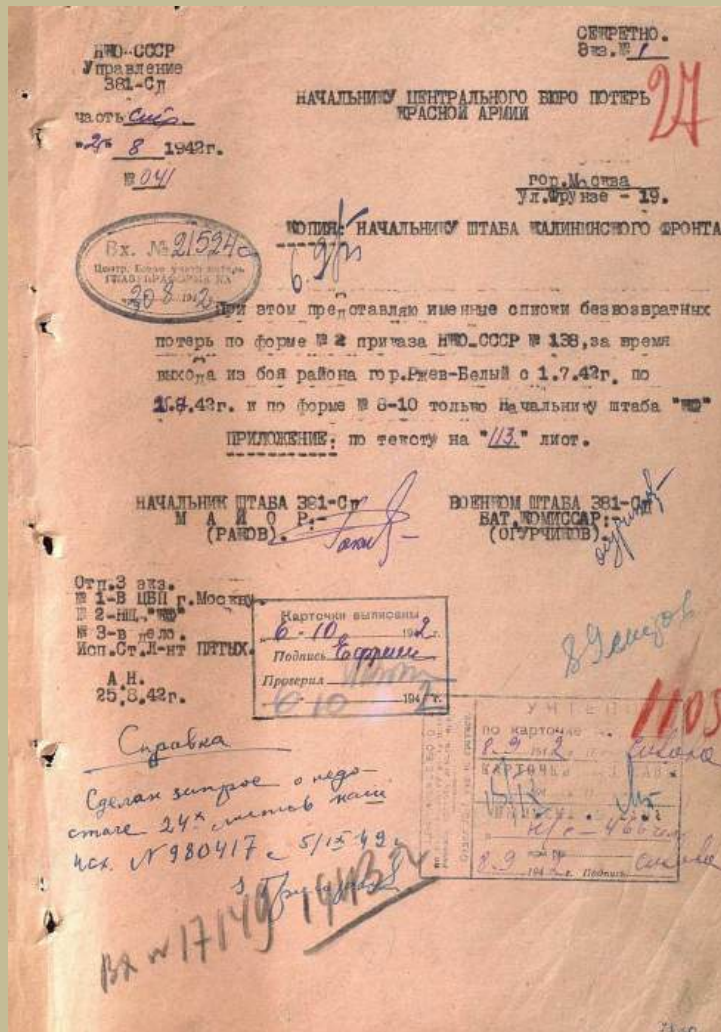 СЕКРЕТНО.
Экз.№ 1
27
НКО-СССР
Управление
381-СД
часть
"25" 8 1942г.
№ 041
НАЧАЛЬНИКУ ЦЕНТРАЛЬНОГО БЮРО ПОТЕРЬ
КРАСНОЙ АРМИИ
гор.Москва
ул.Фрунзе - 19.
КОПИЯ: НАЧАЛЬНИКУ ШТАБА КАЛИНИНСКОГО ФРОНТА
Вх. № 21524с
Центр. Бюро учета потерь
1942
При этом представляю именные списки безвозвратных
потерь по форме № 2 приказа НКО-СССР № 138,за время
выхода из боя района гор.Ржев-Белый с 1.7.42г. по
42г. и по форме № 8-10 только Начальнику штаба "КФ"
ПРИЛОЖЕНИЕ: по тексту на "113." лист.
НАЧАЛЬНИК ШТАБА 381-СД
МАЙОР:-
(РАКОВ).
ВОЕНКОМ ШТАБА 381-СД
БАТ.КОМИССАР:-
(ОГУРЧИКОВ).
Отп.3 экз.
№ 1-В ЦБП г.Москву.
№ 2-НШ "КФ"
№ 3-в дело.
Исп.Ст.Л-нт ПЯТЫХ.
А.Н.
25.8.42г.
Карточки выписаны
6-10 1942г.
Подпись
Проверил
6 10 1942г.
1103
УЧТЕН
по карточке
8.9 1942
н/с-466 чел.
8.9 194 г. Подпись
Справка
Сделан запрос о недо-
стаче 24х листов наш
исх. №980417 с 5/IX-49г
Вх №17149